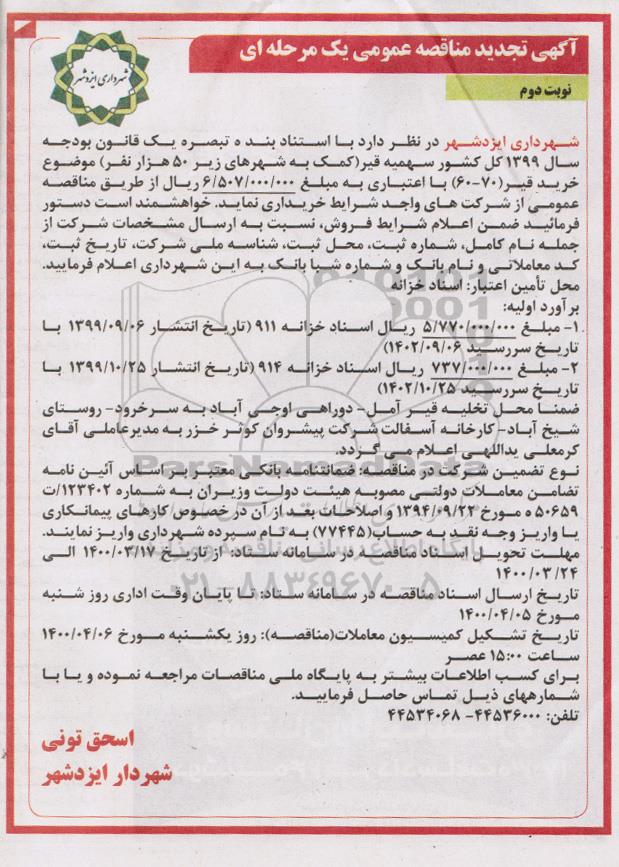 آگهی تجدید مناقصه عمومی یک مرحله ای
نوبت دوم
شهرداری ایزدشهر
شهرداری ایزدشهر در نظر دارد با استناد بند ه تبصره یک قانون بودجه
سال ۱۳۹۹ کل کشور سهمیه قیر(کمک به شهرهای زیر ۵۰ هزار نفر) موضوع
خرید قیر(۷۰-۶۰) با اعتباری به مبلغ ۶/۵۰۷/۰۰۰/۰۰۰ ریال از طریق مناقصه
عمومی از شرکت های واجد شرایط خریداری نماید. خواهشمند است دستور
فرمائید ضمن اعلام شرایط فروش، نسبت به ارسال مشخصات شرکت از
جمله نام کامل، شماره ثبت، محل ثبت، شناسه ملی شرکت، تاریخ ثبت،
کد معاملاتی و نام بانک و شماره شبا بانک به این شهرداری اعلام فرمایید.
محل تأمین اعتبار: اسناد خزانه
برآورد اولیه:
۱- مبلغ ۵/۷۷۰/۰۰۰/۰۰۰ ریال اسناد خزانه ۹۱۱ (تاریخ انتشار ۱۳۹۹/۰۹/۰۶ با
تاریخ سررسید ۱۴۰۲/۰۹/۰۶)
۲- مبلغ ۷۳۷/۰۰۰/۰۰۰ ریال اسناد خزانه ۹۱۴ (تاریخ انتشار ۱۳۹۹/۱۰/۲۵ با
تاریخ سررسید ۱۴۰۲/۱۰/۲۵)
ضمنا محل تخلیه قیر آمل- دوراهی اوجی آباد به سرخرود- روستای
شیخ آباد- کارخانه آسفالت شرکت پیشروان کوثر خزر به مدیرعاملی آقای
کرمعلی یداللهی اعلام می گردد.
نوع تضمین شرکت در مناقصه: ضمانتنامه بانکی معتبر بر اساس آئین نامه
تضامن معاملات دولتی مصوبه هیئت دولت وزیران به شماره ۱۲۳۴۰۲/ت
۵۰۶۵۹ ه مورخ ۱۳۹۴/۰۹/۲۲ و اصلاحات بعد از آن در خصوص کارهای پیمانکاری
یا واریز وجه نقد به حساب(۷۷۴۴۵) به نام سپرده شهرداری واریز نمایند.
مهلت تحویل اسناد مناقصه در سامانه ستاد: از تاریخ ۱۴۰۰/۰۳/۱۷ الی
۱۴۰۰/۰۳/۲۴
تاریخ ارسال اسناد مناقصه در سامانه ستاد: تا پایان وقت اداری روز شنبه
مورخ ۱۴۰۰/۰۴/۰۵
تاریخ تشکیل کمیسیون معاملات(مناقصه): روز یکشنبه مورخ ۱۴۰۰/۰۴/۰۶
ساعت ۱۵:۰۰ عصر
برای کسب اطلاعات بیشتر به پایگاه ملی مناقصات مراجعه نموده و یا با
شمارههای ذیل تماس حاصل فرمایید.
تلفن: ۴۴۵۳۶۰۰۰- ۴۴۵۳۴۰۶۸
اسحق تونی
شهردار ایزدشهر
ParsNamadData
۰۲۱-۸۸۳۴۹۶۷۰-۵